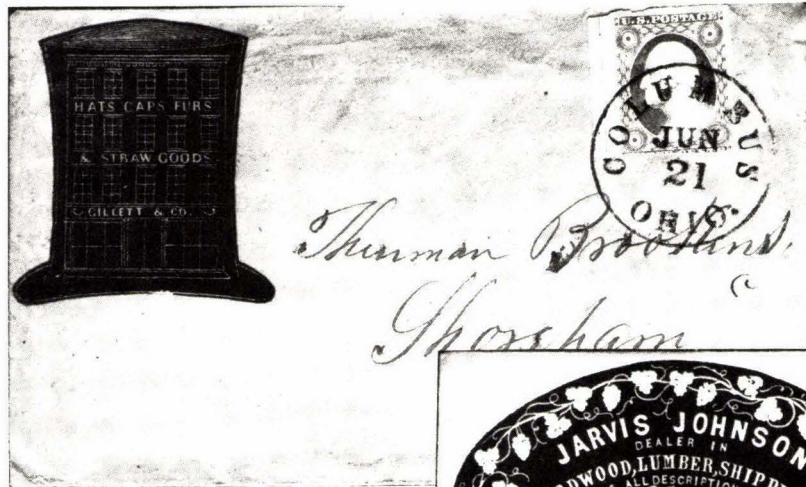 HATS CAPS FURS
& STRAW GOODS
GILLETT & CO.
U.S. POSTAGE
COLUMBUS
JUN
21
OHIO.
Thurman
Shoreham
JARVIS JOHNSON
DEALER IN
LUMBER, SHIP
ALL DESCRIPTION